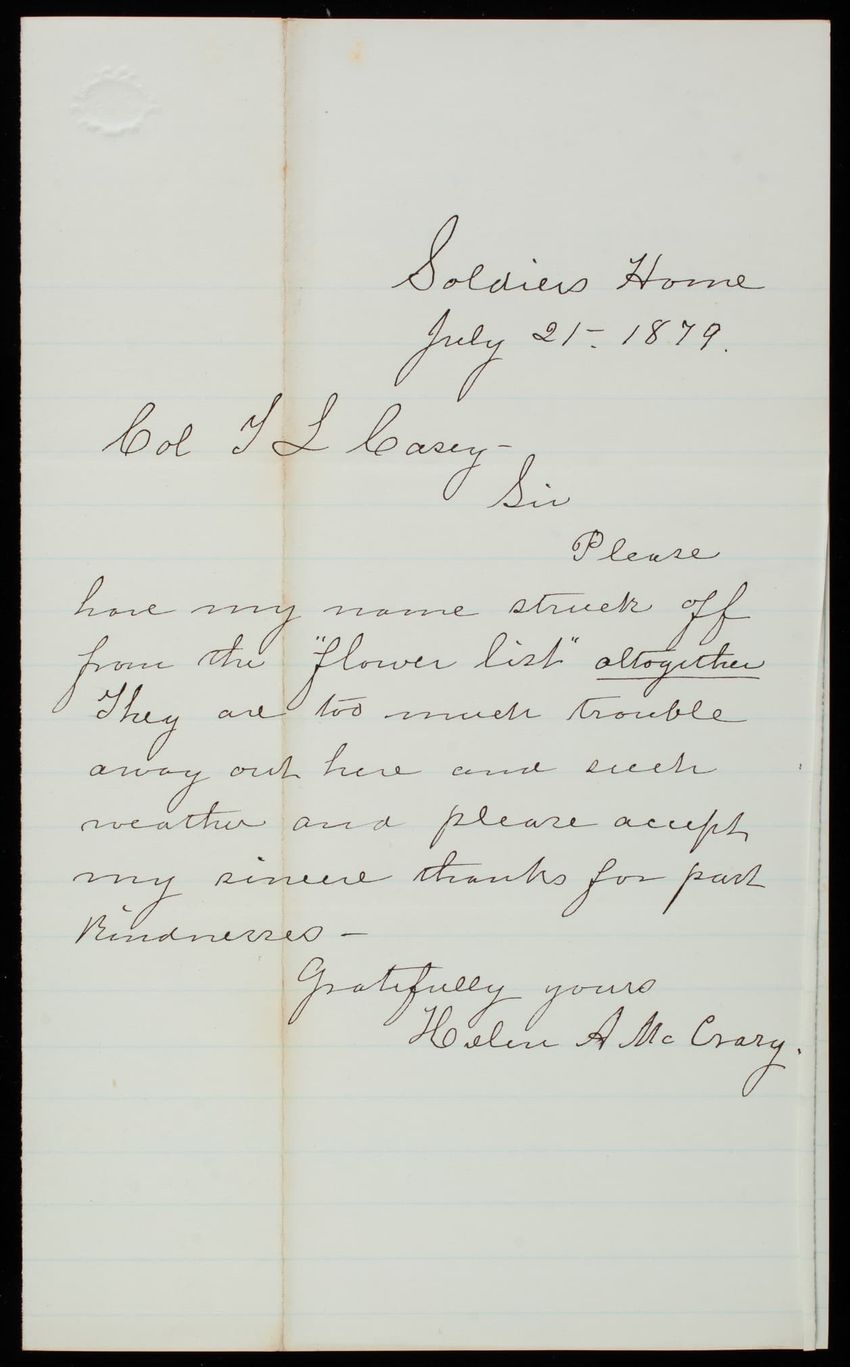 Soldiers Home
July 21-. 1879.
Col T L Casey -
Sir
Please
have my name struck off
from the "flower list" altogether
They are too much trouble
away out here and such
weather and please accept
my sincere thanks for past
kindnesses -
Gratefully yours
Helen A Mc Crary.